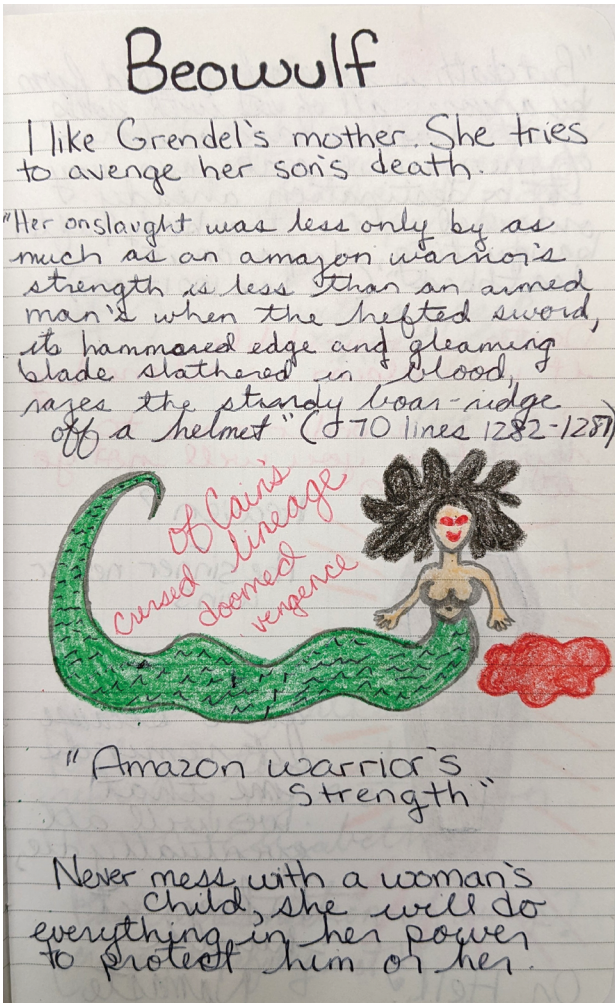 Beowulf
I like Grendel's mother. She tries
to avenge her son's death.
"Her onslaught was less only by as
much as an amazon warrior's
strength is less than an armed
man's when the hefted sword,
its hammored edge and gleaming
blade slathered in blood,
razes the sturdy boar-ridge
off a helmet" (J70 lines 1282-1287)
of Cain's
cursed lineage
doomed
vengence
"Amazon warrior's
strength"
Never mess with a woman's
child, she will do
everything in her power
to protect him or her.